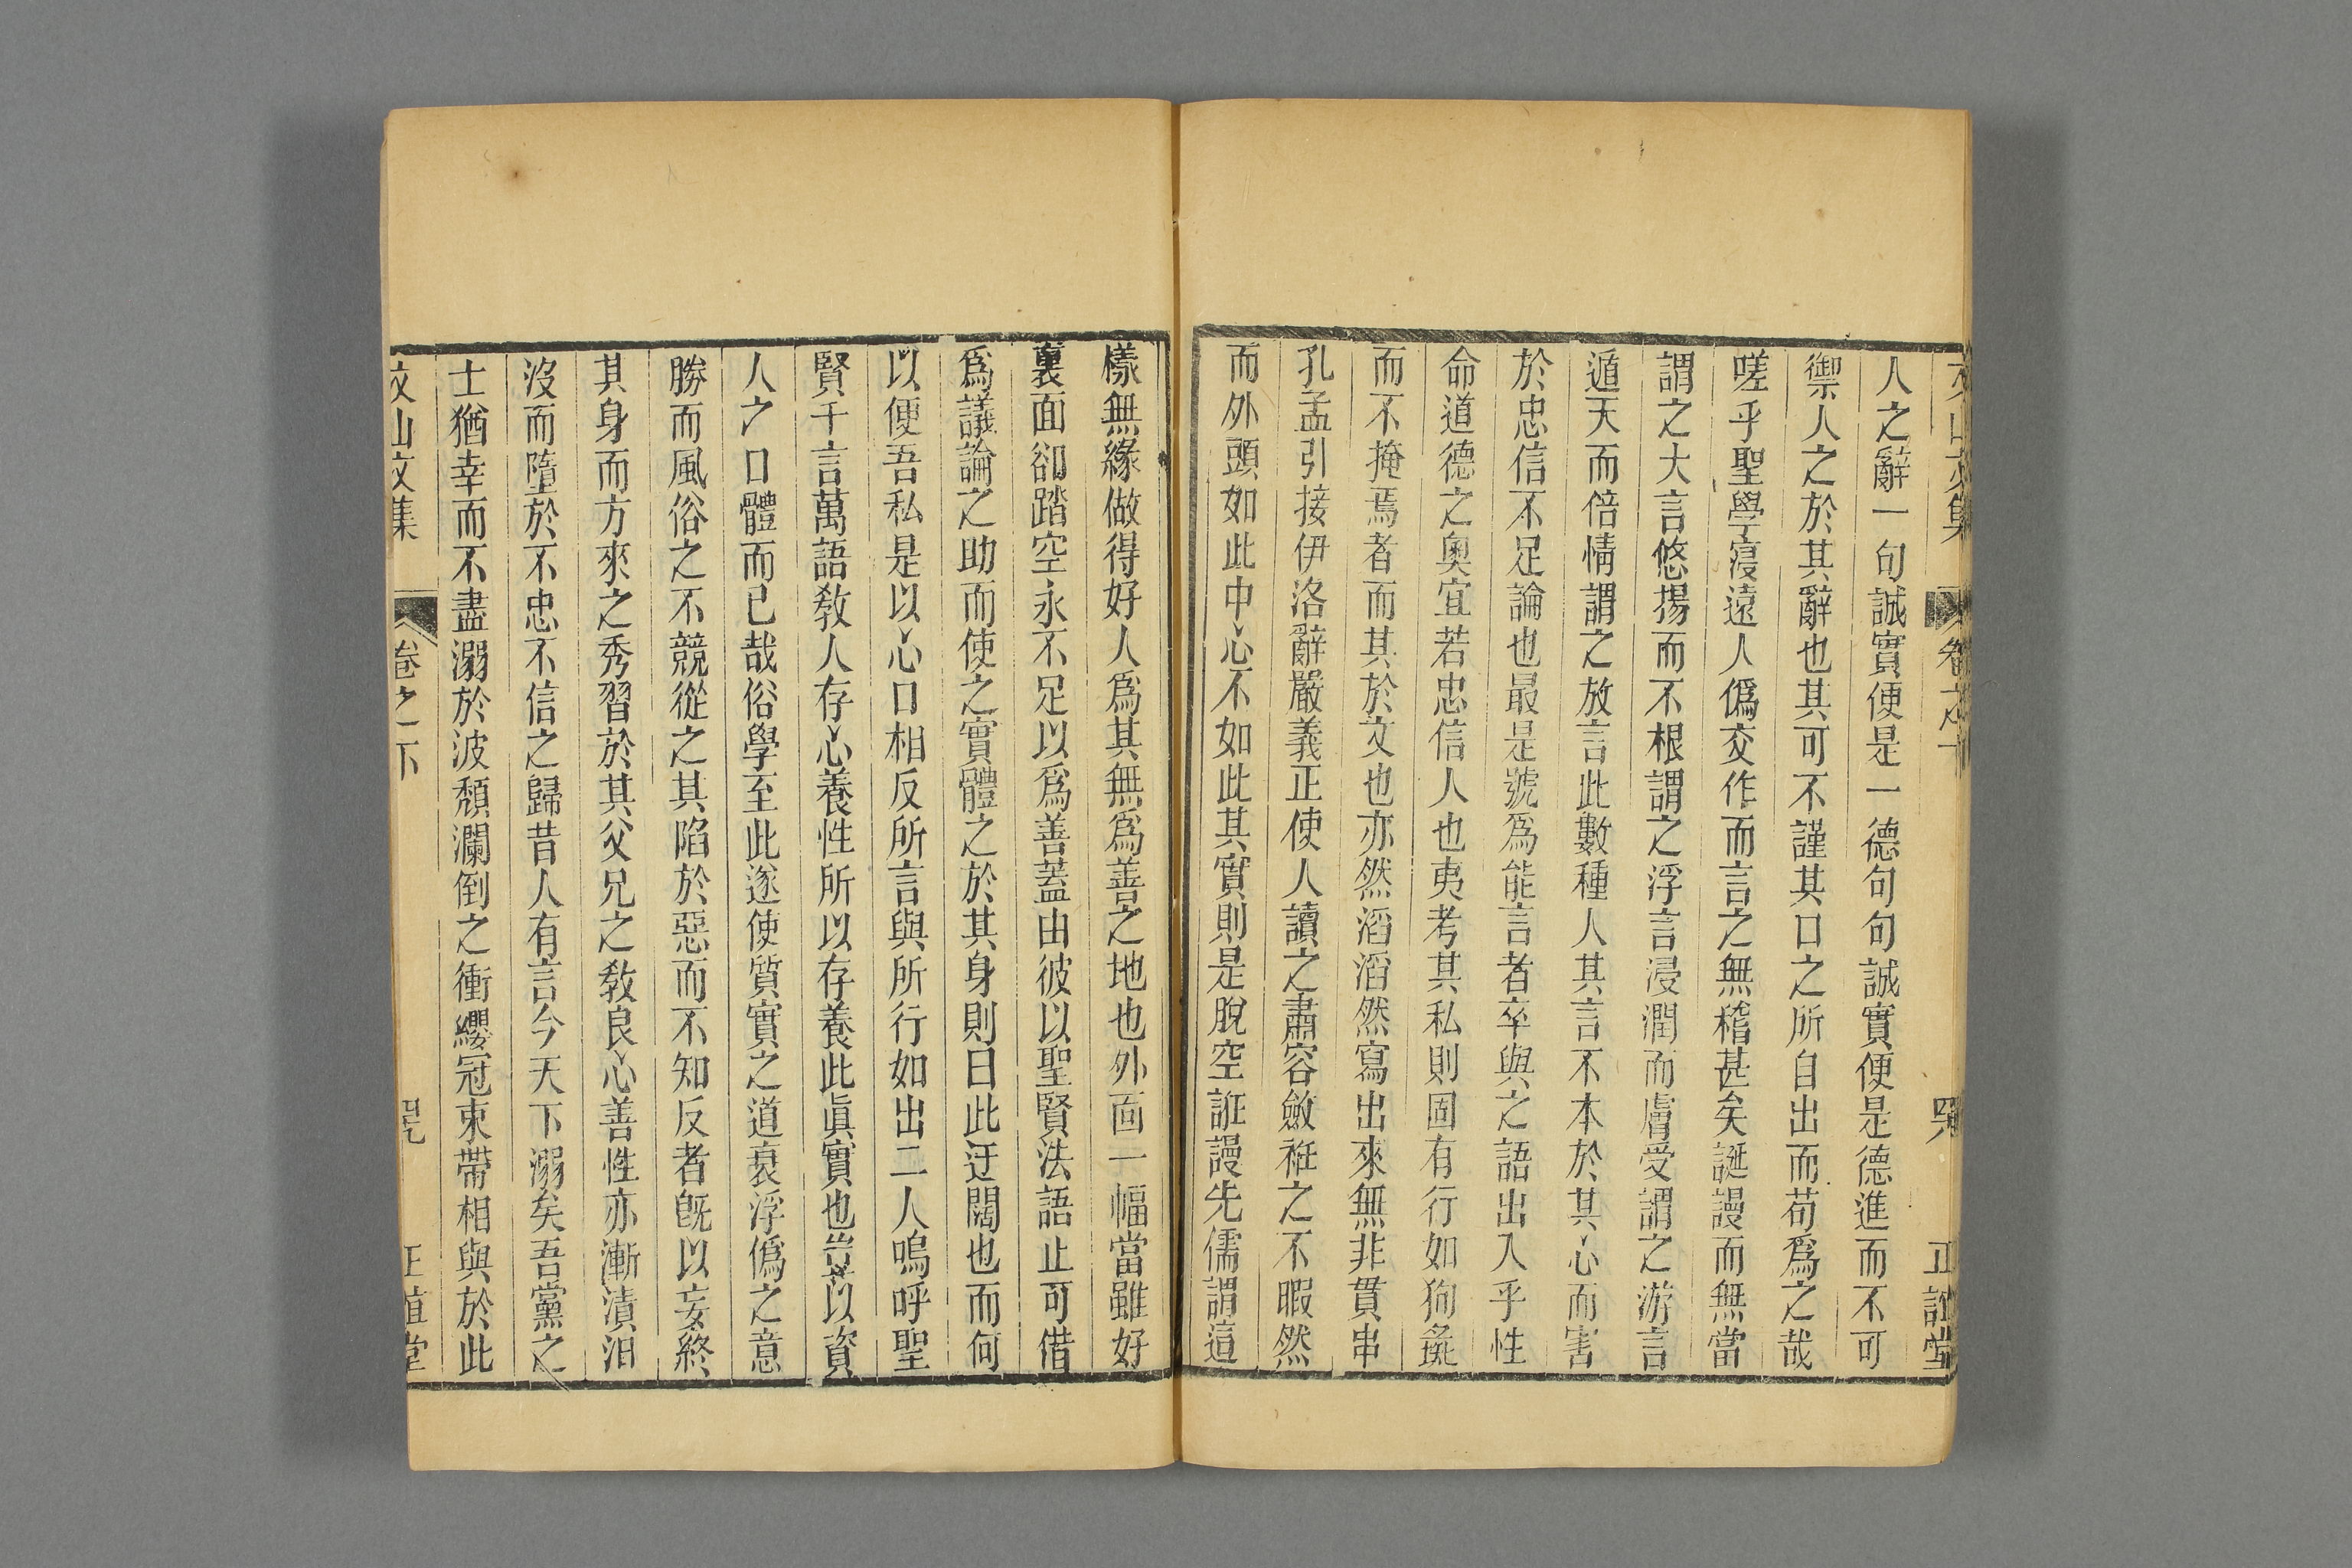 文山文集 卷之下 正誼堂
人之辭一句誠實便是一德句句誠實便是德進而不可
禦人之於其辭也其可不謹其口之所自出而苟爲之哉
嗟乎聖學寖遠人僞交作而言之無稽甚矣誕謾而無當
謂之大言悠揚而不根謂之浮言浸潤而膚受謂之游言
遁天而倍情謂之放言此數種人其言不本於其心而害
於忠信不足論也最是號爲能言者卒與之語出入乎性
命道德之奧宜若忠信人也夷考其私則固有行如狗彘
而不掩焉者而其於文也亦然滔滔然寫出來無非貫串
孔孟引接伊洛辭嚴義正使人讀之肅容斂袵之不暇然
而外頭如此中心不如此其實則是脫空誑謾先儒謂這
樣無緣做得好人爲其無爲善之地也外面一幅當雖好
裏面卻踏空永不足以爲善蓋由彼以聖賢法語止可借
爲議論之助而使之實體之於其身則曰此迂闊也而何
以便吾私是以心口相反所言與所行如出二人嗚呼聖
賢千言萬語敎人存心養性所以存養此眞實也豈以資
人之口體而已哉俗學至此遂使質實之道衰浮僞之意
勝而風俗之不競從之其陷於惡而不知反者旣以妄終
其身而方來之秀習於其父兄之敎良心善性亦漸漬汨
沒而墮於不忠不信之歸昔人有言今天下溺矣吾黨之
士猶幸而不盡溺於波頹瀾倒之衝纓冠束帶相與於此
文山文集 卷之下 正誼堂